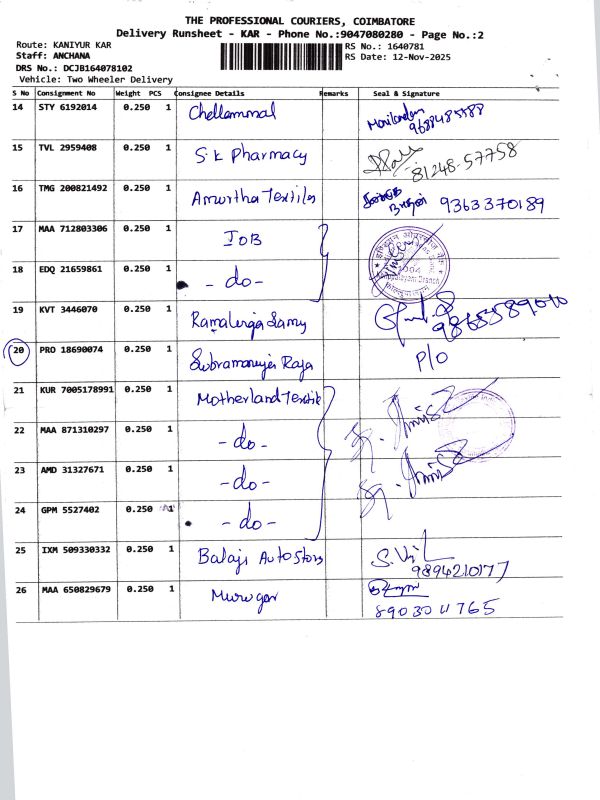 THE PROFESSIONAL COURIERS, COIMBATORE
Delivery Runsheet - KAR - Phone No.:9047080280 - Page No.:2
Route: KANIYUR KAR
RS No.: 1640781
Staff: ANCHANA
RS Date: 12-Nov-2025
DRS No.: DCJB164078102
Vehicle: Two Wheeler Delivery
S No Consignment No Weight PCS Consignee Details Remarks Seal & Signature
14 STY 6192014 0.250 1 Chellammal
9688485588
15 TVL 2959408 0.250 1 S.K Pharmacy
81248-57758
16 TMG 200821492 0.250 1 Amirtha Textiles
9363370189
17 MAA 712803306 0.250 1 IOB
18 EDQ 21659861 0.250 1 - do -
19 KVT 3446070 0.250 1 Ramalinga Samy
20 PRO 18690074 0.250 1 Subramaniya Raja P/O
21 KUR 7005178991 0.250 1 Motherland Textile
22 MAA 871310297 0.250 1 - do -
23 AMD 31327671 0.250 1 - do -
24 GPM 5527402 0.250 1 - do -
25 IXM 509330332 0.250 1 Balaji Auto Stors
9894210177
26 MAA 650829679 0.250 1 Murugan
8903011765